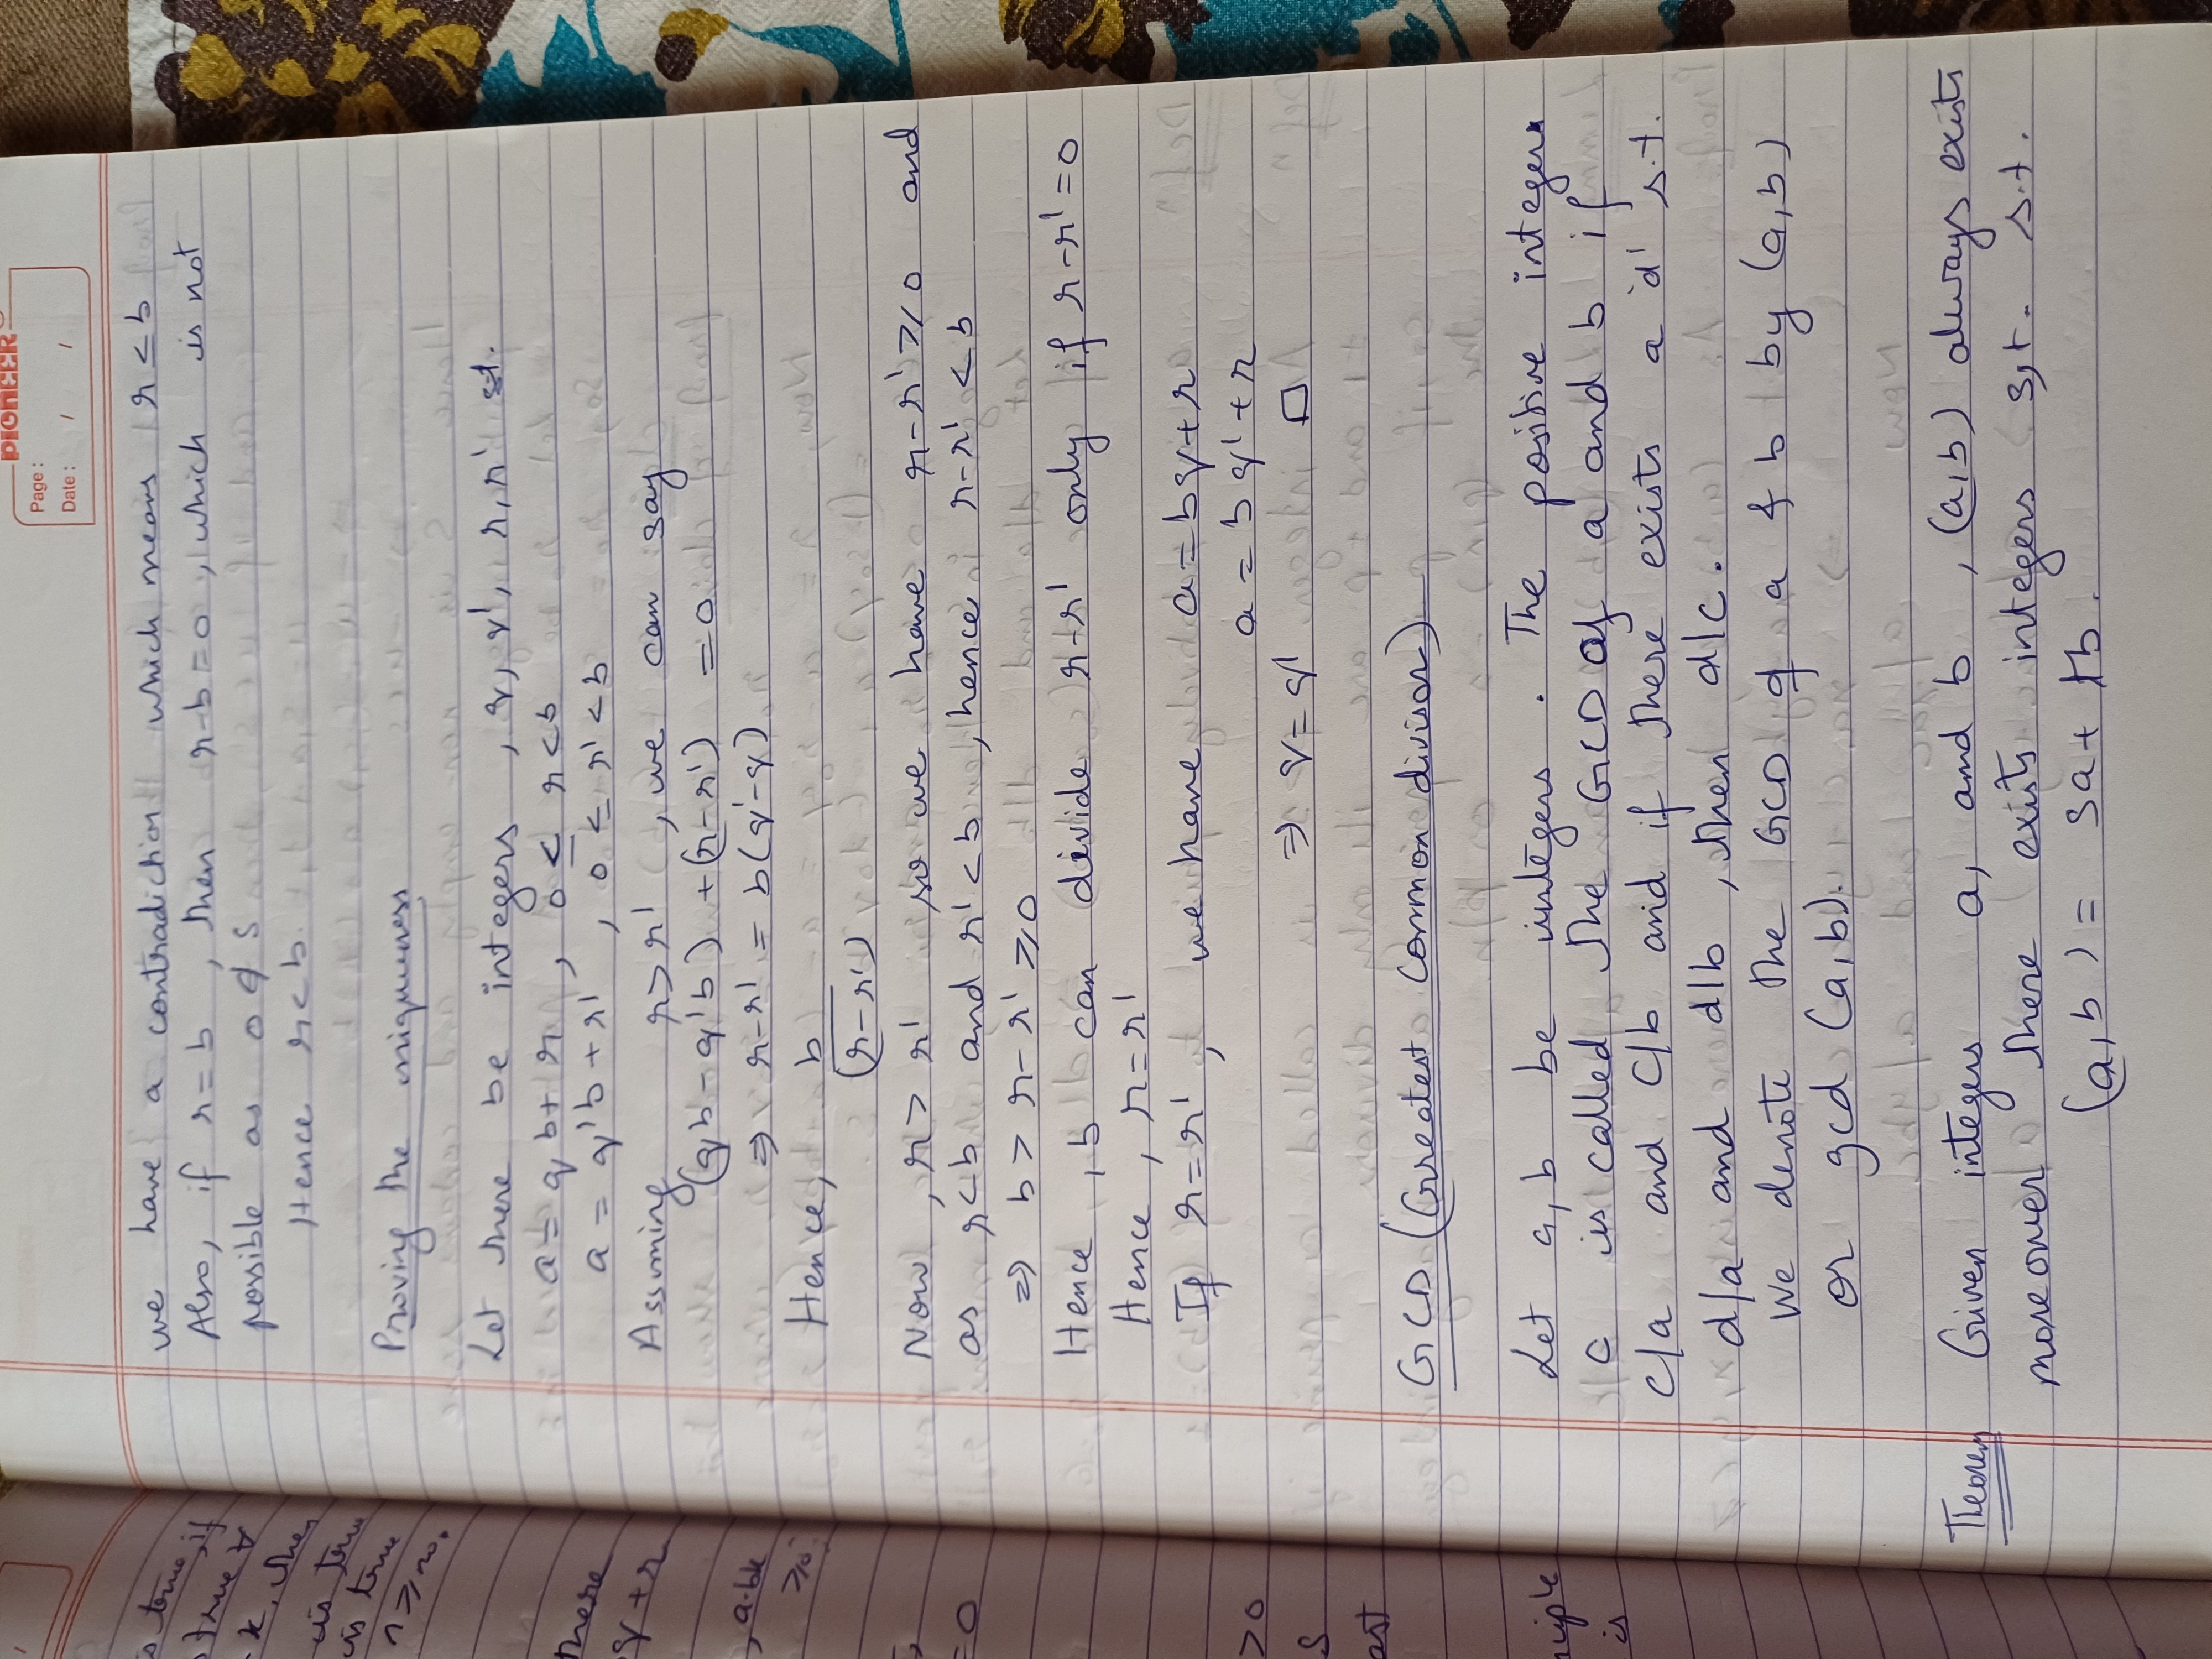 PIONEER
Page :
Date : / /
we have a contradiction which means r ≤ b
Also, if r = b, then r-b = 0, which is not
possible as 0 ∉ S
Hence r < b.
Proving the uniqueness
Let there be integers, q, q', r, r' s.t.
a = qb + r, 0 ≤ r < b
a = q'b + r', 0 ≤ r' < b
Assuming r > r', we can say
(qb - q'b) + (r - r') = 0
⇒ r - r' = b(q' - q)
Hence, b
(r - r')
Now, r > r', so we have r - r' ≥ 0 and
as r < b and r' < b, hence r - r' < b
⇒ b > r - r' ≥ 0
Hence, b can divide r - r' only if r - r' = 0
Hence, r = r'
If r = r', we have a = bq + r
a = bq' + r
⇒ q = q' □
GCD (Greatest common divisor)
Let a, b be integers. The positive integer
c is called the GCD of a and b if
c/a and c/b and if there exists a 'd' s.t.
d/a and d/b, then d/c.
We denote the GCD of a & b by (a,b)
or gcd (a,b).
Theorem Given integers a, and b, (a,b) always exists
moreover there exists integers s,t. s.t.
(a,b) = sa + tb.
is true
n ≥ no.
there
q + r
, a-bk
≥ 0
= 0
> 0
S
is